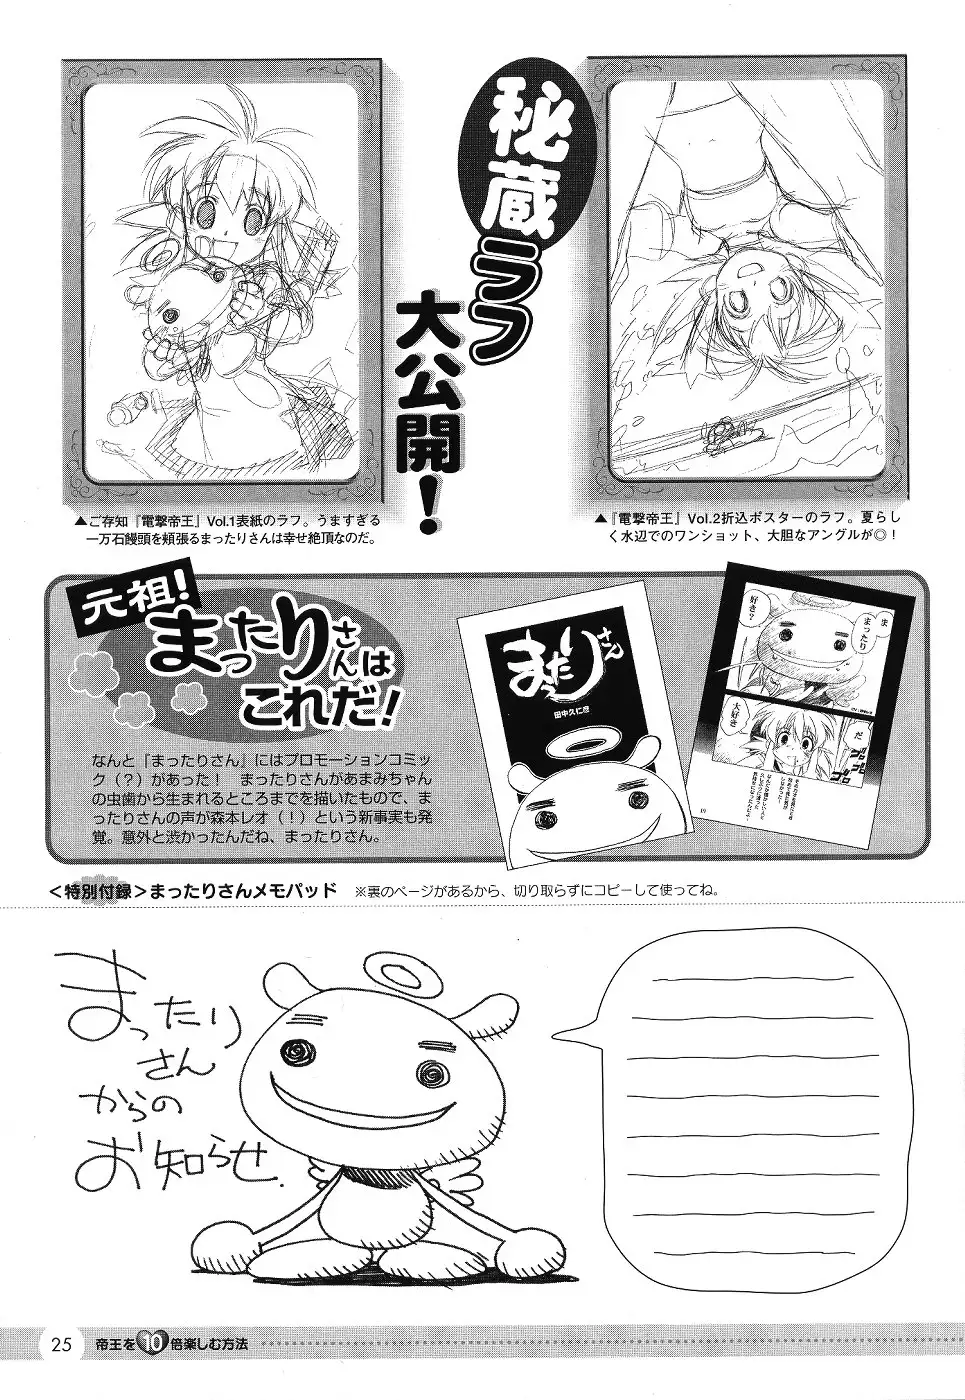 秘蔵ラフ
大公開！
▲ご存知『電撃帝王』Vol.1表紙のラフ。うますぎる
一万石饅頭を頬張るまったりさんは幸せ絶頂なのだ。
▲『電撃帝王』Vol.2折込ポスターのラフ。夏らし
く水辺でのワンショット、大胆なアングルが◎！
元祖！
まったりさんは
これだ！
なんと『まったりさん』にはプロモーションコミッ
ク（？）があった！　まったりさんがあまみちゃん
の虫歯から生まれるところまでを描いたもので、ま
ったりさんの声が森本レオ（！）という新事実も発
覚。意外と渋かったんだね、まったりさん。
まったりさん
田中久仁彦
ま
まったり
好き？
だ
大好き
ゴロ
ゴロ
19
＜特別付録＞まったりさんメモパッド　※裏のページがあるから、切り取らずにコピーして使ってね。
まったり
さん
からの
お知らせ.
25 帝王を10倍楽しむ方法